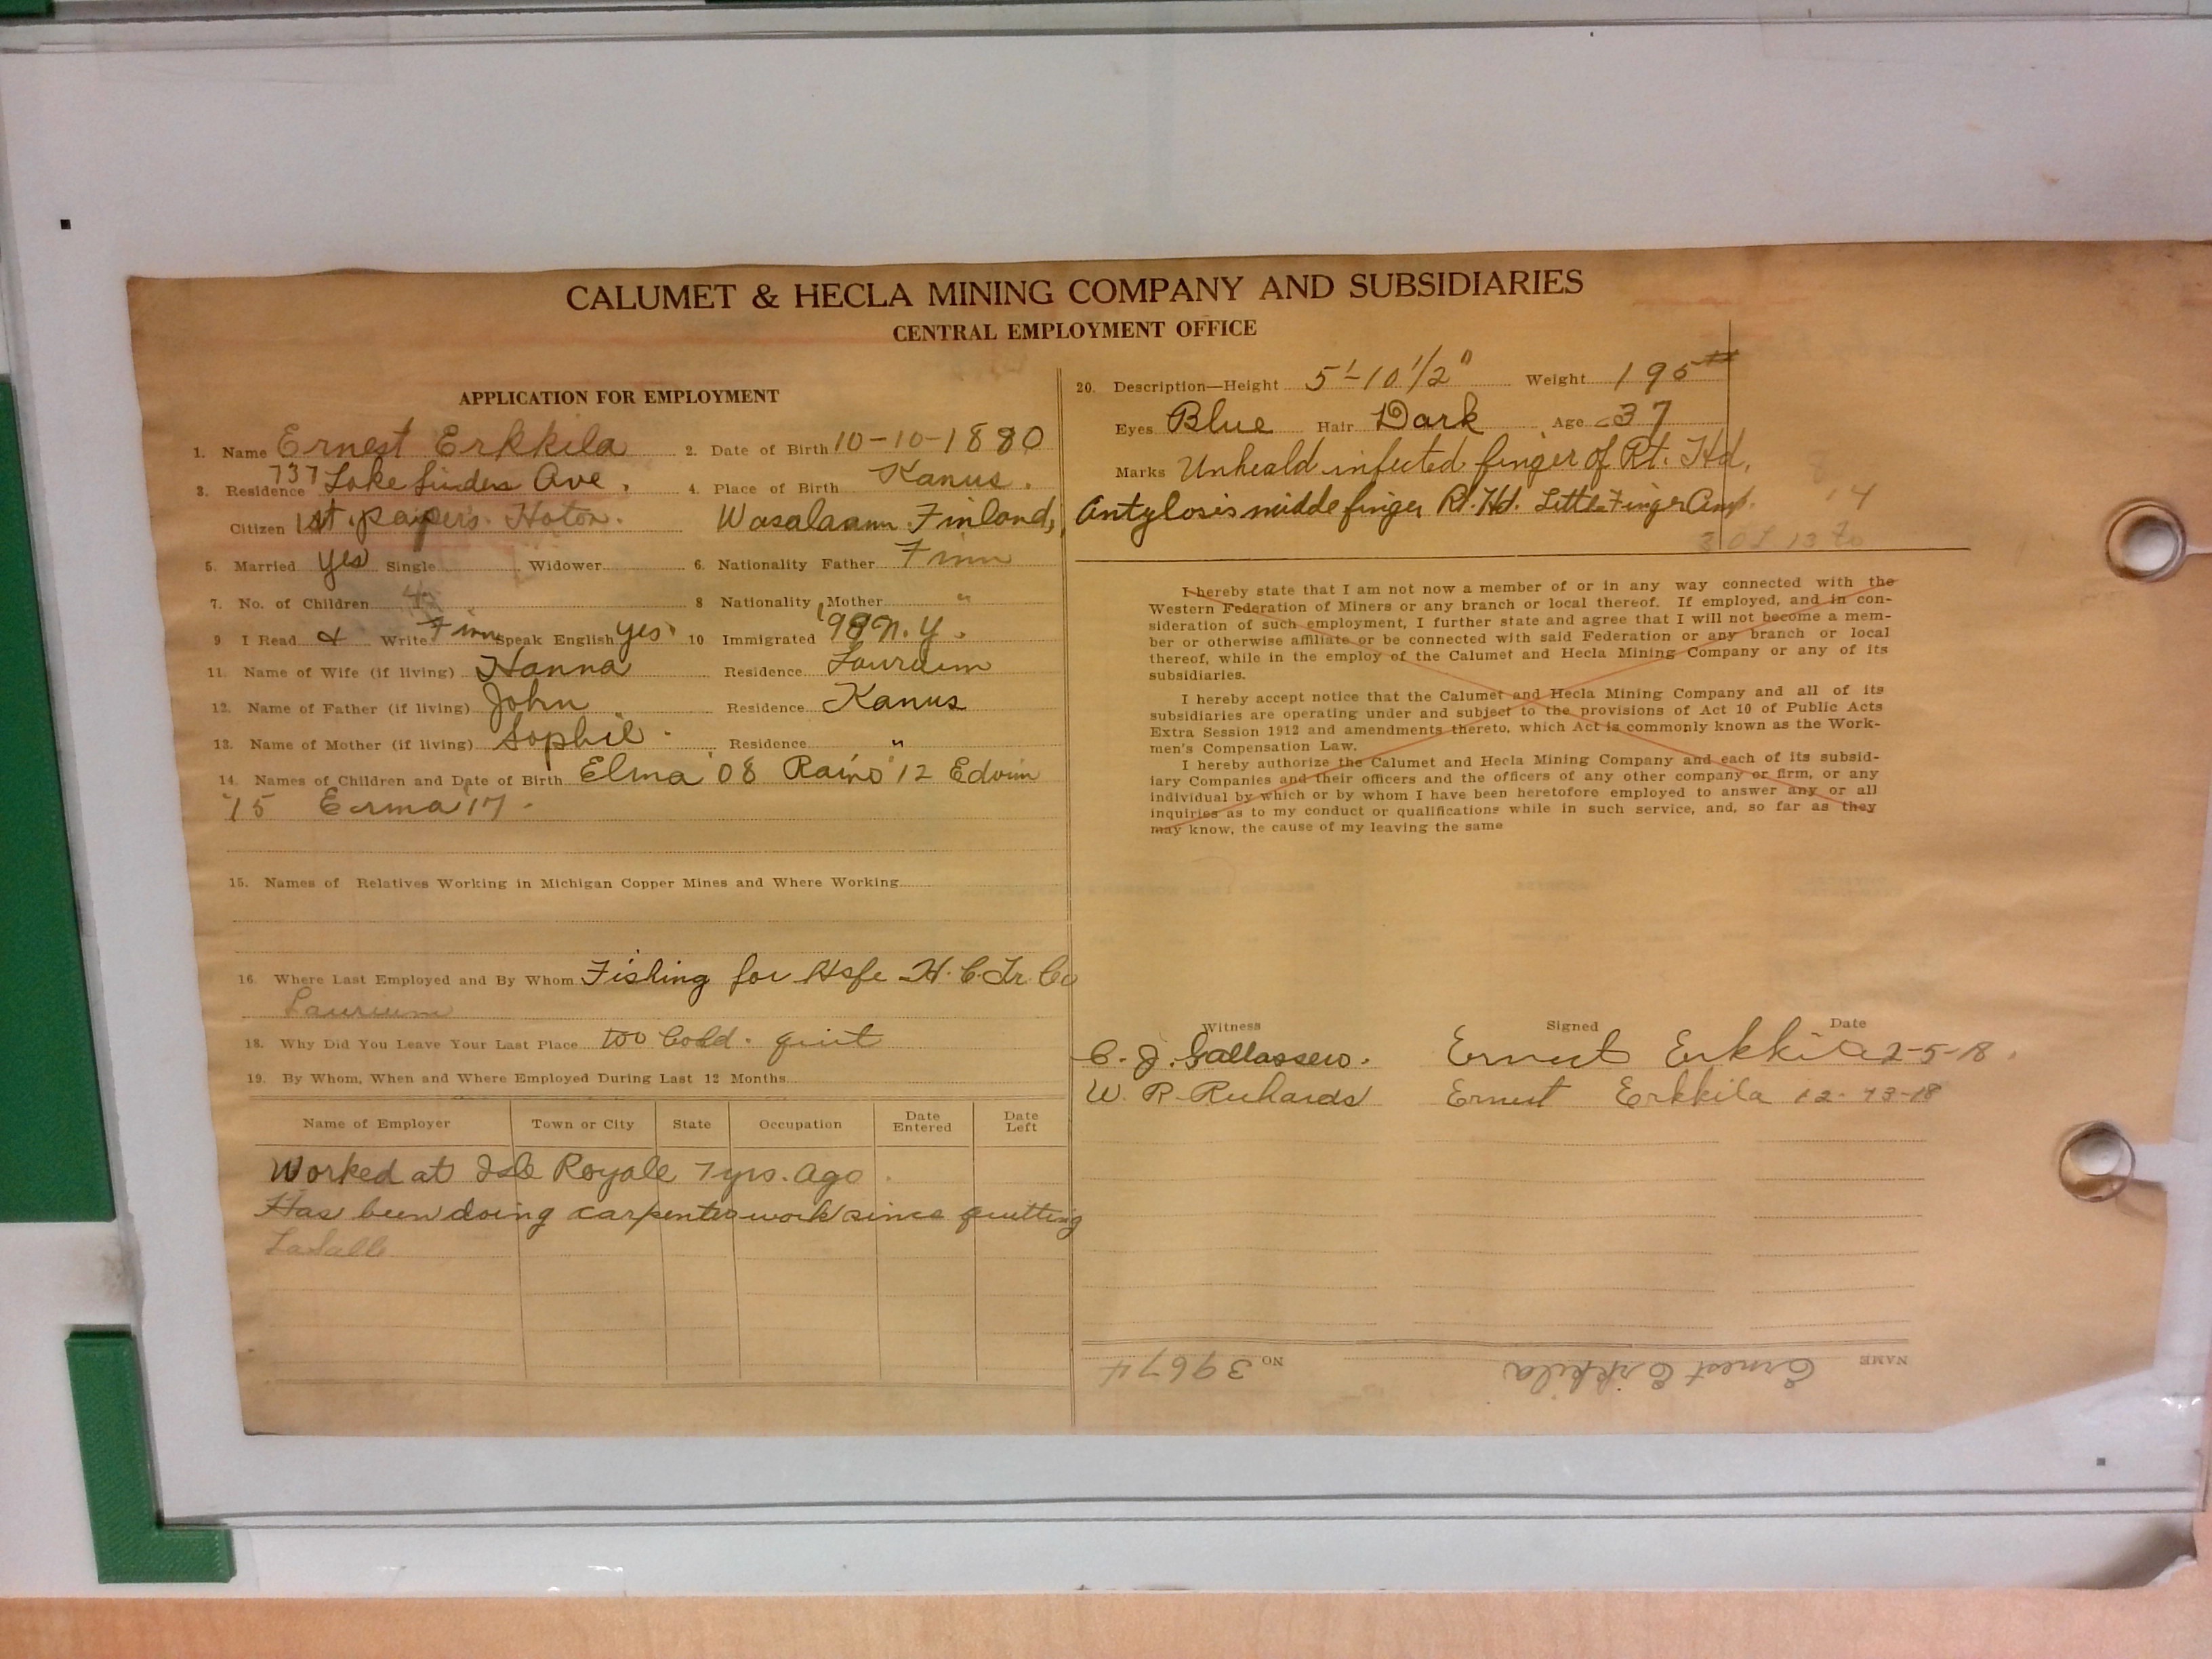 CALUMET & HECLA MINING COMPANY AND SUBSIDIARIES
CENTRAL EMPLOYMENT OFFICE
APPLICATION FOR EMPLOYMENT
1. Name Ernest Erkkila 2. Date of Birth 10-10-1880
3. Residence 737 Lake Linden Ave. 4. Place of Birth Kanus.
Citizen 1st papers. Hoton. Wasalaann Finland,
5. Married yes Single Widower 6. Nationality Father Finn
7. No. of Children 4 8 Nationality Mother "
9 I Read & Write Finn Speak English yes. 10 Immigrated '98 N.Y.
11. Name of Wife (if living) Hanna Residence Laurium
12. Name of Father (if living) John Residence Kanus
13. Name of Mother (if living) Sophil. Residence "
14. Names of Children and Date of Birth Elma '08 Raino '12 Edwin
'15 Erma '17.
15. Names of Relatives Working in Michigan Copper Mines and Where Working
16. Where Last Employed and By Whom Fishing for H. C. Tr. Co
Laurium
18. Why Did You Leave Your Last Place too Cold. quit
19. By Whom, When and Where Employed During Last 12 Months
Name of Employer Town or City State Occupation Date Entered Date Left
Worked at Isle Royale 7 yrs. ago.
Has been doing carpenter work since quitting
LaSalle
20. Description—Height 5'-10 1/2" Weight 195#
Eyes Blue Hair Dark Age 37
Marks Unheald infected finger of Rt. Hd.
Antylosis middle finger Rt. Hd. Little Finger Amp.
I hereby state that I am not now a member of or in any way connected with the
Western Federation of Miners or any branch or local thereof. If employed, and in con-
sideration of such employment, I further state and agree that I will not become a mem-
ber or otherwise affiliate or be connected with said Federation or any branch or local
thereof, while in the employ of the Calumet and Hecla Mining Company or any of its
subsidiaries.
I hereby accept notice that the Calumet and Hecla Mining Company and all of its
subsidiaries are operating under and subject to the provisions of Act 10 of Public Acts
Extra Session 1912 and amendments thereto, which Act is commonly known as the Work-
men's Compensation Law.
I hereby authorize the Calumet and Hecla Mining Company and each of its subsid-
iary Companies and their officers and the officers of any other company or firm, or any
individual by which or by whom I have been heretofore employed to answer any or all
inquiries as to my conduct or qualifications while in such service, and, so far as they
may know, the cause of my leaving the same
Witness Signed Date
C. J. Gallassero. Ernest Erkkila 2-5-18.
W. R. Richards Ernest Erkkila 12-13-18
NAME Ernest Erkkila NO. 39674